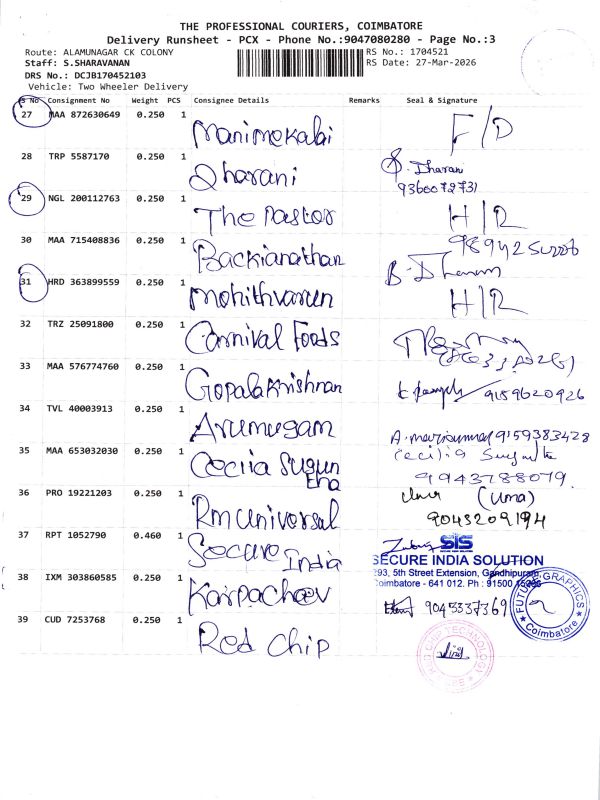 THE PROFESSIONAL COURIERS, COIMBATORE
Delivery Runsheet - PCX - Phone No.:9047080280 - Page No.:3
Route: ALAMUNAGAR CK COLONY RS No.: 1704521
Staff: S.SHARAVANAN RS Date: 27-Mar-2026
DRS No.: DCJB170452103
Vehicle: Two Wheeler Delivery
S No Consignment No Weight PCS Consignee Details Remarks Seal & Signature
27 MAA 872630649 0.250 1 Manimekalai F/D
28 TRP 5587170 0.250 1 Dharani Dharani
9360072731
29 NGL 200112763 0.250 1 The Pastor H/R
30 MAA 715408836 0.250 1 Backianathan
31 HRD 363899559 0.250 1 Mohithvarun H/R
32 TRZ 25091800 0.250 1 Carnival Foods
33 MAA 576774760 0.250 1 Gopalakrishnan 9159620926
34 TVL 40003913 0.250 1 Arumugam 9159383428
35 MAA 653032030 0.250 1 Cecilia Sugun
9943788079
36 PRO 19221203 0.250 1 Rm Universal (Uma)
9043209194
37 RPT 1052790 0.460 1 Secure India
SIS
SECURE INDIA SOLUTION
293, 5th Street Extension, Gandhipuram
Coimbatore - 641 012. Ph : 91500
38 IXM 303860585 0.250 1 9045337369
FUTURE GRAPHICS
Coimbatore
39 CUD 7253768 0.250 1 Red Chip
RED CHIP TECHNOLOGY